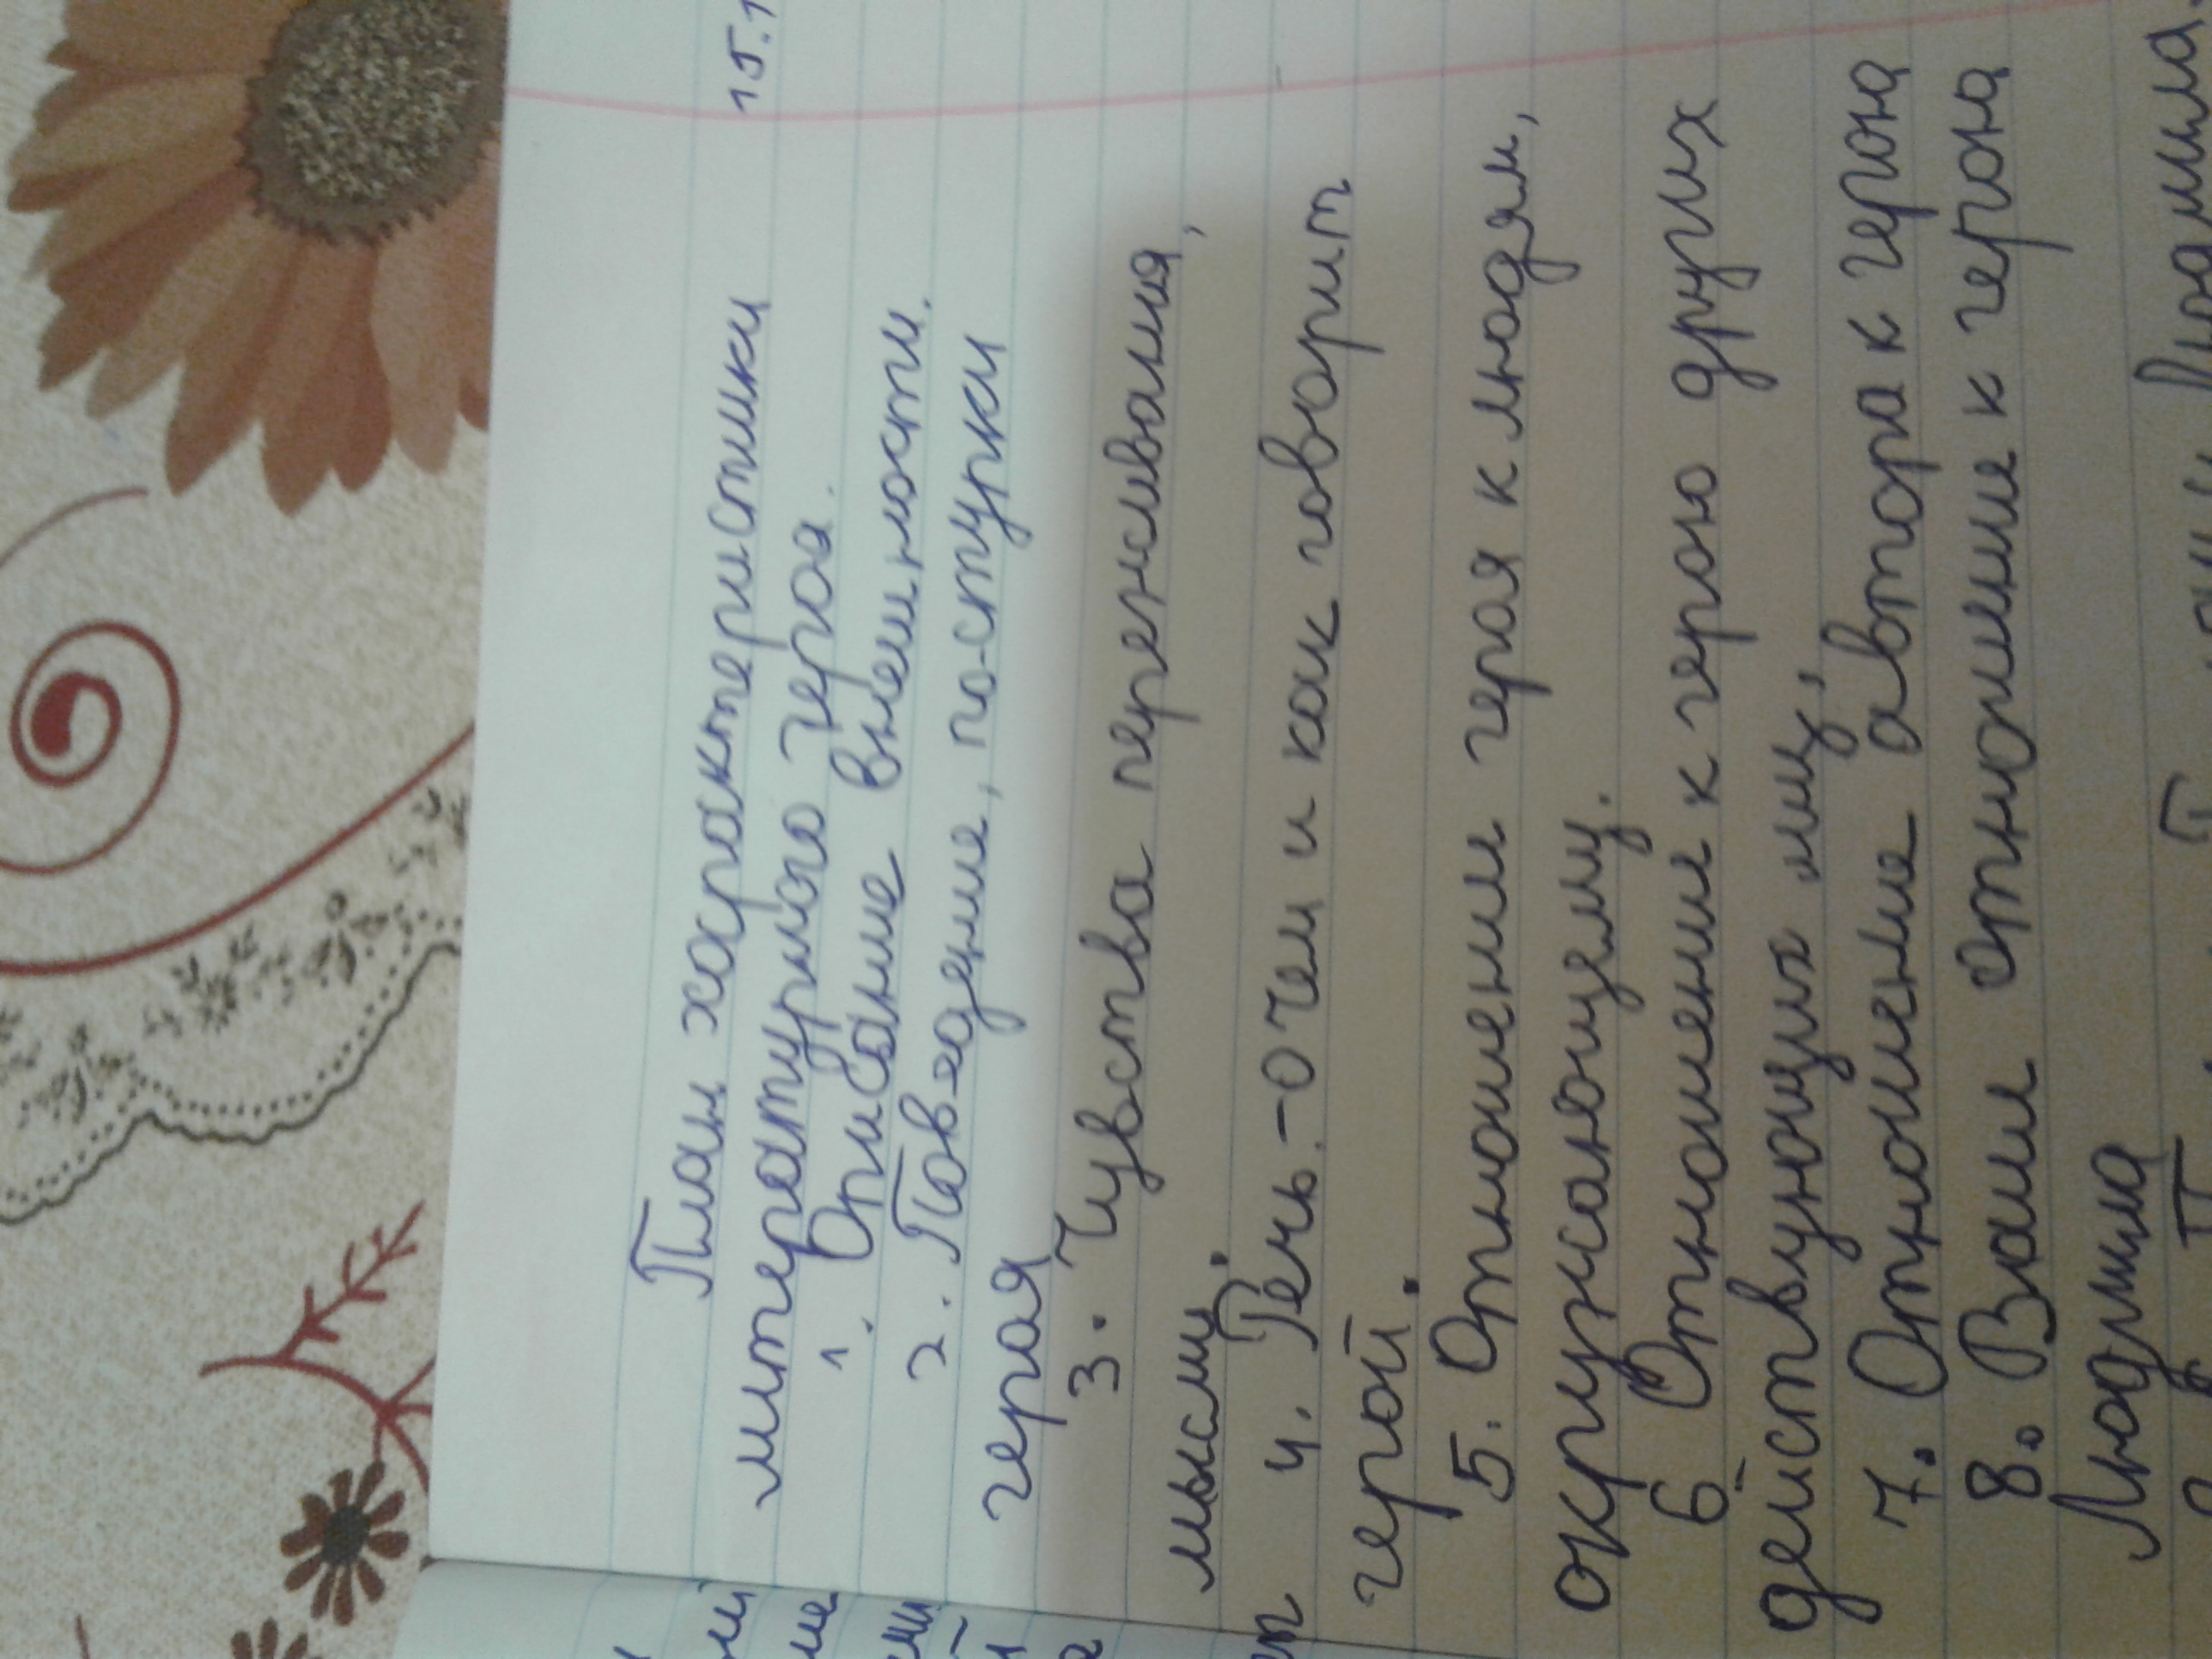 План характеристики
литературного героя.
15.1
1. Описание внешности.
2. Поведение, поступки
героя
3. Чувства переживания,
мысли.
4. Речь.-О чем и как говорит
герой.
5. Отношение героя к людям,
окружающему.
6 Отношение к герою других
действующих лиц.
7. Отношение автора к герою
8. Ваше отношение к герою
Людмила
Людмила.